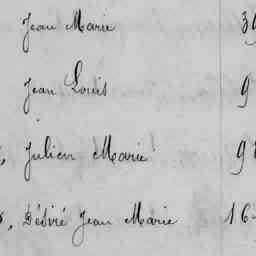 Jean Marie
Jean Louis 9
Julien Marie 9
Désiré Jean Marie 16